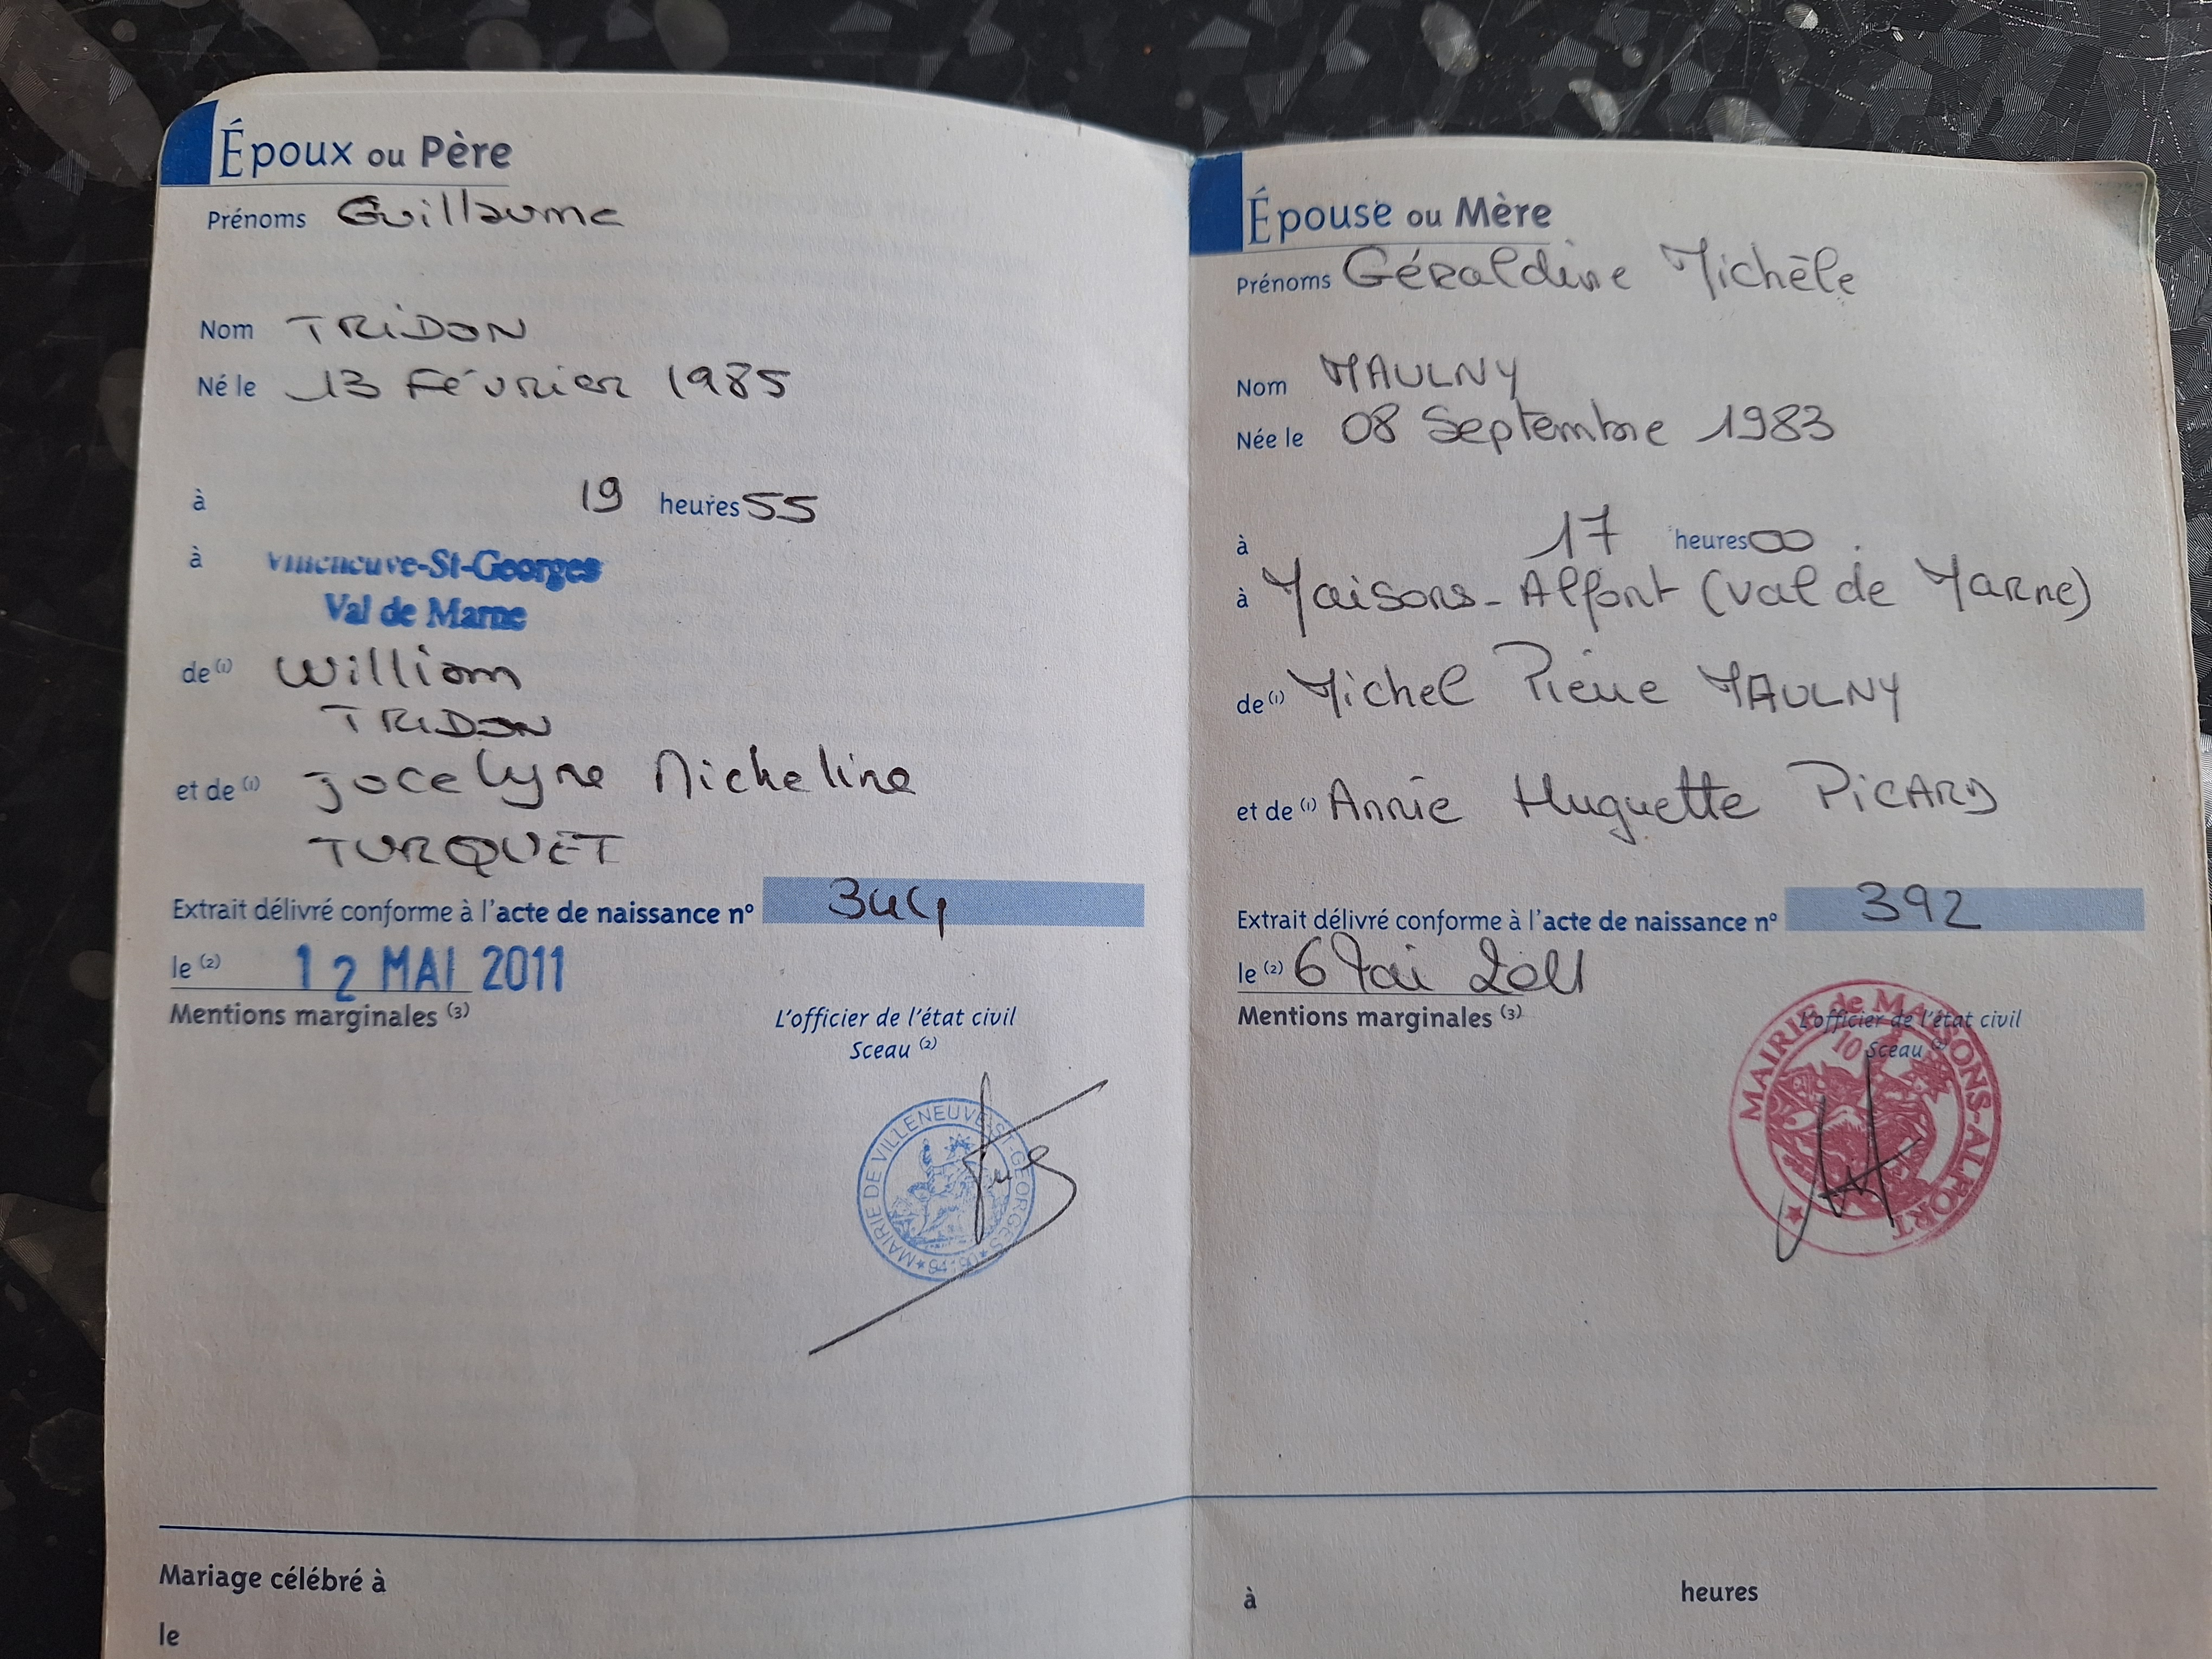 Époux ou Père
Prénoms Guillaume
Nom TRIDON
Né le 13 Février 1985
à 19 heures 55
à Villeneuve-St-Georges
Val de Marne
de (1) William
TRIDON
et de (1) Jocelyne Micheline
TURQUET
Extrait délivré conforme à l'acte de naissance n° 344
le (2) 12 MAI 2011
Mentions marginales (3)
L'officier de l'état civil
Sceau (2)
MAIRIE DE VILLENEUVE-ST-GEORGES
Mariage célébré à
le
Épouse ou Mère
Prénoms Géraldine Michèle
Nom MAULNY
Née le 08 Septembre 1983
à 17 heures 00
à Maisons-Alfort (Val de Marne)
de (1) Michel Pierre MAULNY
et de (1) Annie Huguette PICARD
Extrait délivré conforme à l'acte de naissance n° 392
le (2) 6 Mai 2011
Mentions marginales (3)
L'officier de l'état civil
Sceau (2)
MAIRIE de MAISONS-ALFORT
10
à heures